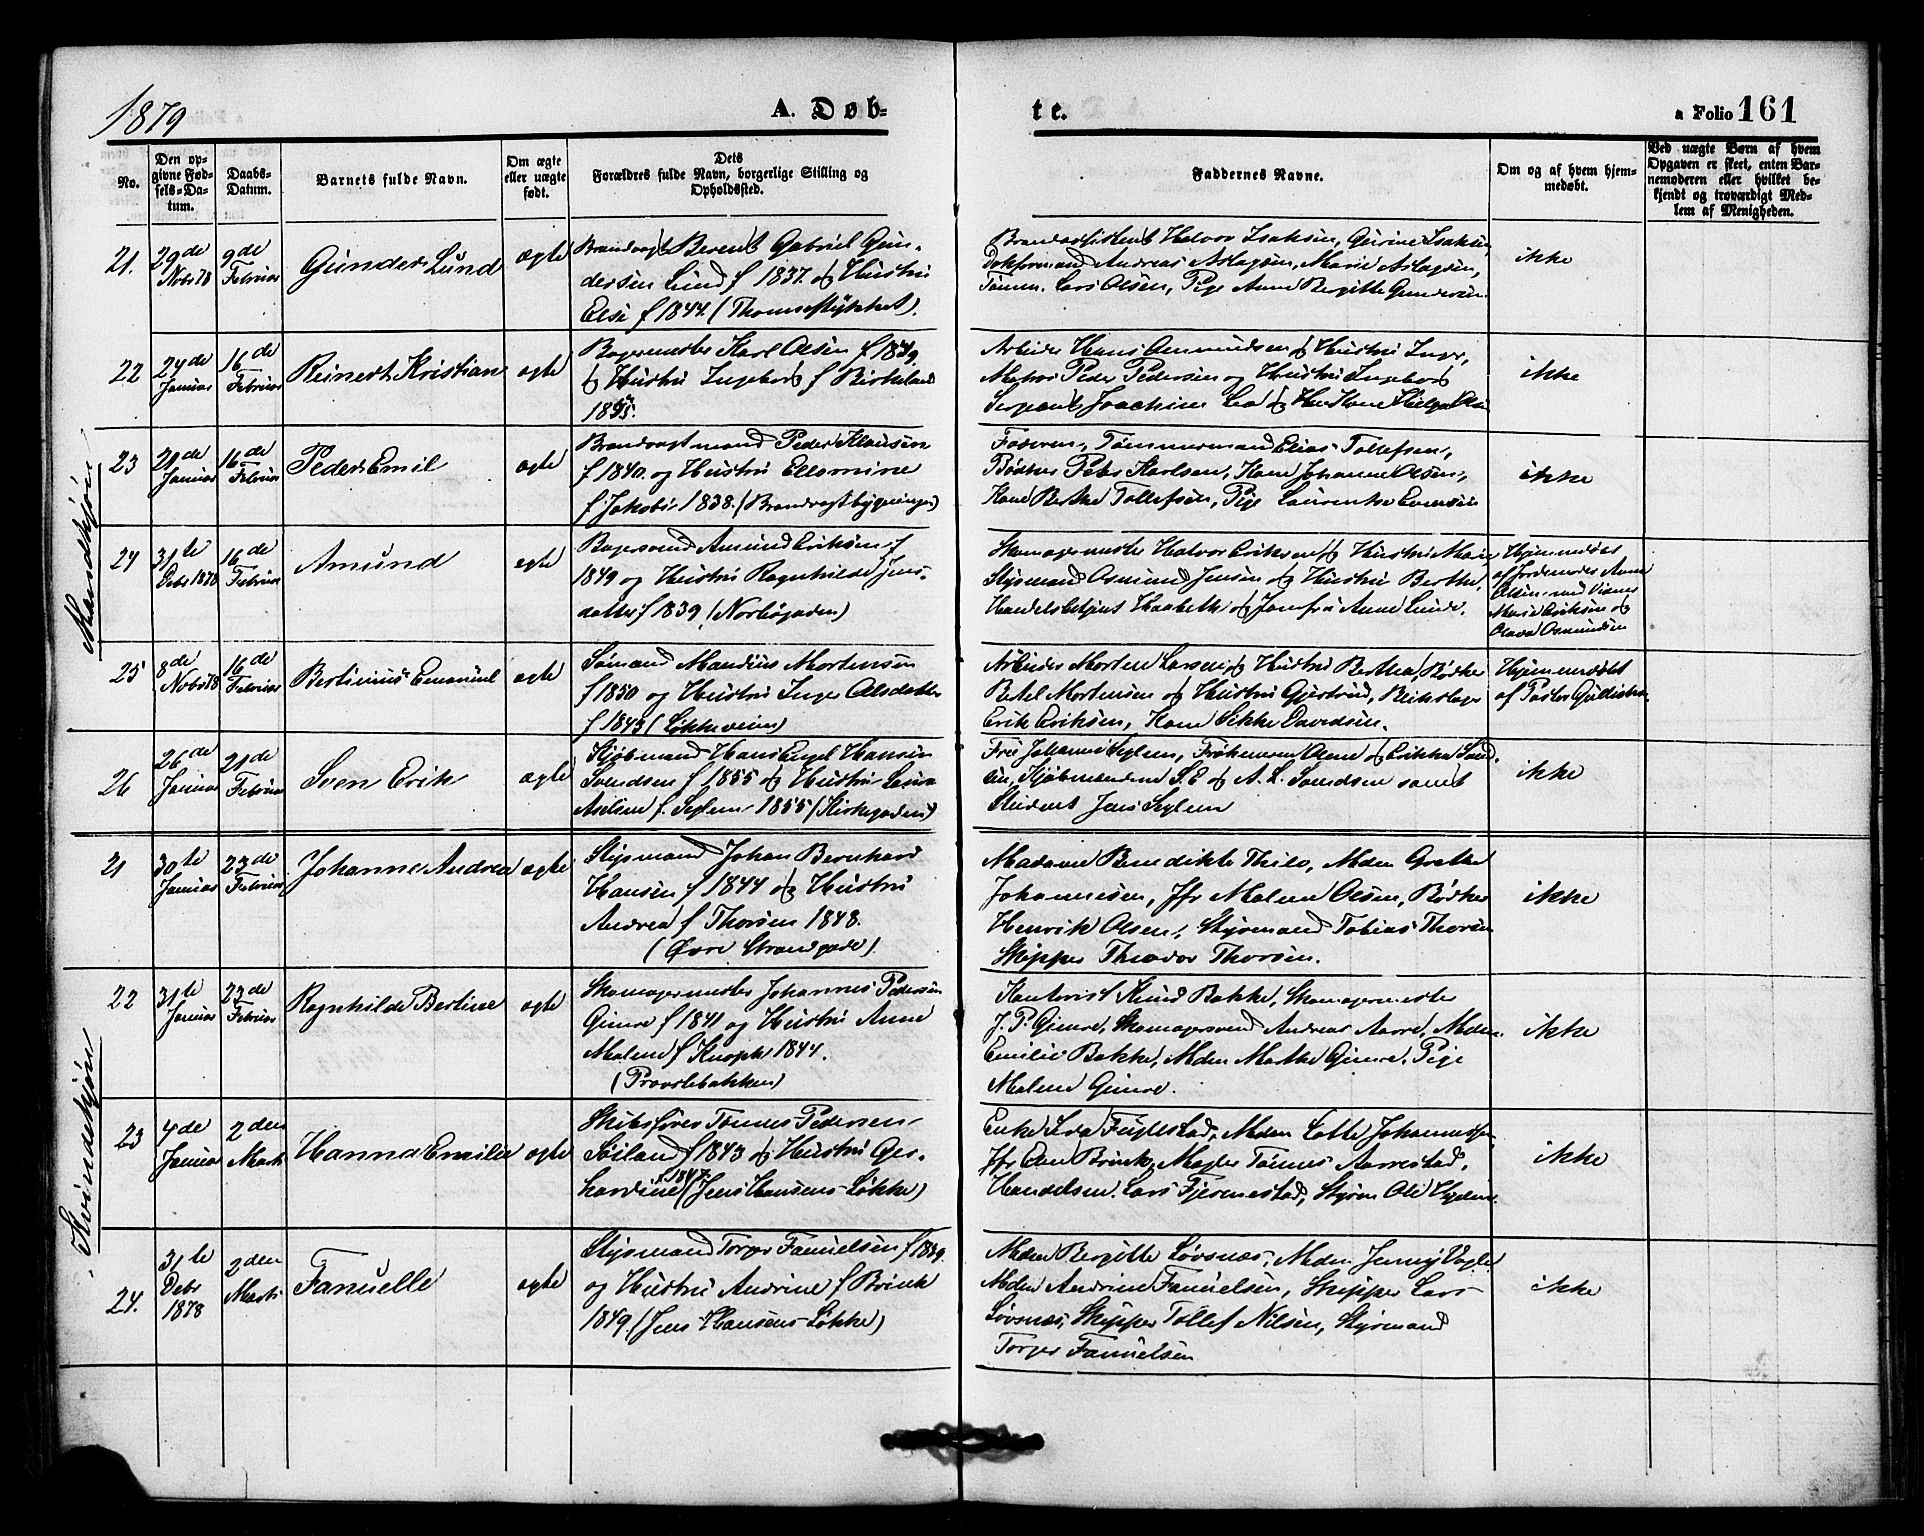 1879
A. Døb-
te.
a Folio 161
No.
Den op-
givne Fød-
sels-Da-
tum.
Daabs-
Datum.
Barnets fulde Navn.
Om ægte
eller uægte
født.
Dets
Forældres fulde Navn, borgerlige Stilling og
Opholdssted.
Faddernes Navne.
Om og af hvem hjem-
medøbt.
Ved uægte Børn af hvem
Opgaven er skeet, enten Bar-
nemoderen eller hvilket be-
kjendt og troværdigt Med-
lem af Menigheden.
Mandkjøn
21.
29de
Nobr 78
9de
Februar
Gunder Lund
ægte
Brandvagt Berent Gabriel Gun-
dersen Lund f 1837 og Hustru
Else f 1844. (Thomsestykket).
Brandassistent Halvor Isaksen, Gurine Isaksen,
Dokformand Andreas Aslagsen, Marie Aslagsen,
Tømm. Lars Olsen, Pige Anne Bergitte Gundersen
ikke
22
24de
Januar
16de
Februar
Reinert Kristian
ægte
Bagermester Karl Olsen f 1849
og Hustru Ingeborg f Birkeland
1855.
Arbeider Hans Osmundsen og Hustru Inger,
Matros Peder Pedersen og Hustru Ingeborg
Sergeant Joachim Lea og
ikke
23
29de
Januar
16de
Februar
Peder Emil
ægte
Brandvagtmand Peder Klausen
f 1840. og Hustru Ellomine
f Jakobs. 1838. (Brandvagtbygningen)
Faderen, Tømmermand Elias Tollefsen,
Bødker Peter Karlsen, Kone Johanne Olsen,
Kone Berthe Tollefsen, Pige Laurentse Evensen
ikke
24
31te
Debr 1878
16de
Februar
Amund
ægte
Bagersvend Amund Eriksen f
1849 og Hustru Ragnhilde Jens-
datter f 1839 (Norbøgaden)
Skomagermester Halvor Eriksen og Hustru Marie
Styrmand Osmund Jensen og Hustru Berthe,
Handelsbetjent Haabeth og Jomfru Anne Lunde.
Hjemmedøbt
af Jordemoder Anne
Olsen med Vidner
Marie Eriksen og
Olava Osmundsen
25
8de
Nobr 78
16de
Februar
Bertinius Emanuel
ægte
Sømand Mandius Mortensen
f 1850 og Hustru Inger Olsdatter
f 1843 (Løkkeveien)
Arbeider Morten Larsen og Hustru Bertha, Bødker
Betel Mortensen og Hustru Gjertrud, Reibslager
Erik Eriksen, Kone Sikke Davidsen.
Hjemmedøbt
af Pastor
26
26de
Januar
21de
Februar
Sven Erik
ægte
Kjøbmand Hans Engel Hansen
Svendsen f 1855 og Hustru Laura
Axeline f. Seglem 1855 (Kirkegaden)
Fru Johanne Seglem, Frøknerne Olene og Erikke Svend-
sen, Kjøbmændene S. E. og A. L. Svendsen samt
Student Jens Seglem
ikke
Kvindekjøn
21
30te
Januar
23de
Februar
Johanne Andrea
ægte
Styrmand Johan Bernhard
Hansen f 1844 og Hustru
Andrea f Thorsen 1848.
(Øvre Strandgade)
Madame Benedikte Thilo, Mdm Grethe
Johannesen, Jfr Malene Olsen, Bødker
Henrik Olsen, Styrmand Tobias Thorsen
Skipper Theodor Thorsen.
ikke
22
31te
Januar
23de
Februar
Ragnhilde Bertine
ægte
Skomagermester Johannes Pedersen
Gimre f 1841 og Hustru Anne
Malene f Knoph 1844.
(Provstebakken)
Kontorist Knud Bakke, Skomagermester
J. P. Gimre, Skomagersvend Andreas Aarre, Mdm
Emilie Bakke, Mdm Marthe Gimre, Pige
Malene Gimre.
ikke
23
4de
Januar
2den
Marts
Hanna Emilie
ægte
Skibsfører Tønnes Pedersen
Søiland f 1843 og Hustru Ger-
hardine f 1847 (Jens Hansens Løkke)
Enke Eva Fuglestad, Mdm Lotte Johannesen,
Jfr Brink, Mægler Tønnes Aarrestad,
Handelsm. Lars Fjermestad, Styrm Ole
ikke
24.
31te
Debr
1878
2den
Marts
Fanuelle
ægte
Styrmand Torger Fanuelsen f 1839
og Hustru Andrine f Brink
1849. (Jens Hansens Løkke)
Mdm Bergitte Løvsnæs, Mdm Jenny Vogle
Mdm Andrine Fanuelsen, Skipper Lars
Løvsnæs, Skipper Tollef Nilsen, Styrmand
Torger Fanuelsen
ikke